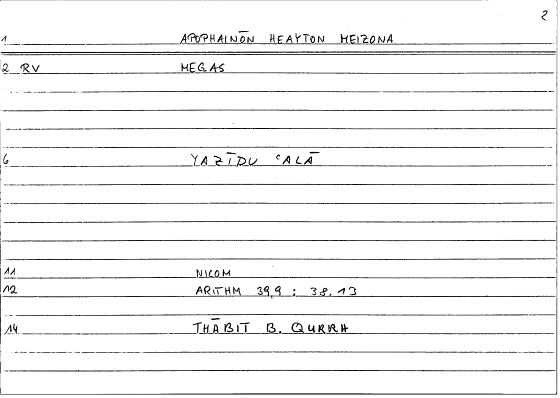 2
1 APOPHAINŌN HEAYTON MEIZONA
2 RV MEGAS
6 YAZĪDU ʿALĀ
11 NICOM
12 ARITHM 39,9 : 38.13
14 THĀBIT B. QURRA